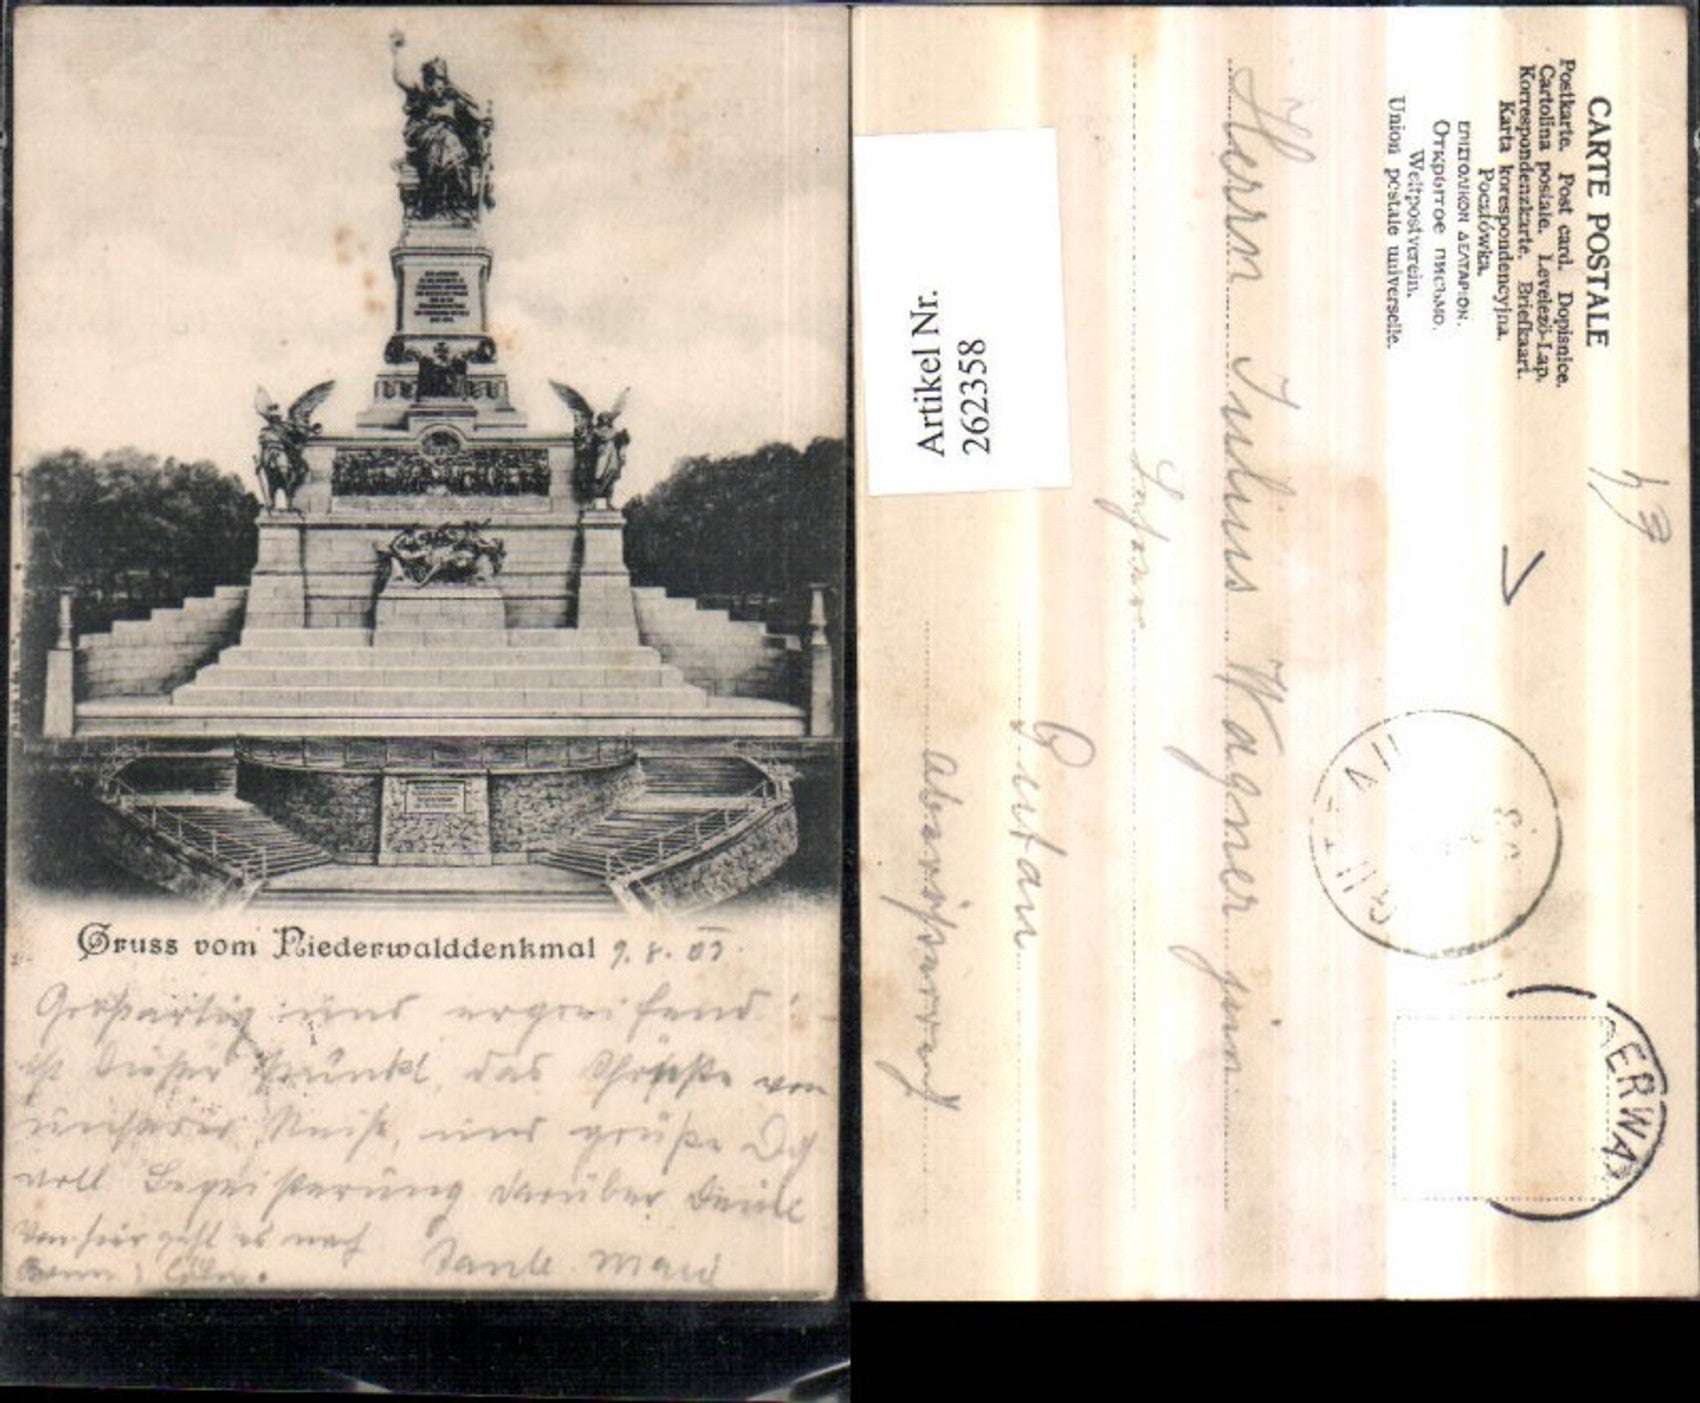 Gruss vom Niederwalddenkmal 9. 8. 03
Großartig und ergreifend
ist dieser Punkt, das Schönste von
unserer Reise, und grüße Dich
voll Begeisterung darüber Deine
Von hier geht es nach
Tante Marie
Bonn, Cöln.
CARTE POSTALE
Postkarte. Post card. Dopisnice.
Cartolina postale. Levelező-Lap.
Korrespondenzkarte. Briefkaart.
Karta korespondencyjna.
Pocztówka.
ΕΠΙΣΤΟΛΙΚΟΝ ΔΕΛΤΑΡΙΟΝ.
Открытое письмо.
Weltpostverein.
Union postale universelle.
Herrn Julius Wagner jun
Gutau
Oberösterreich
Artikel Nr.
262358
ERWA